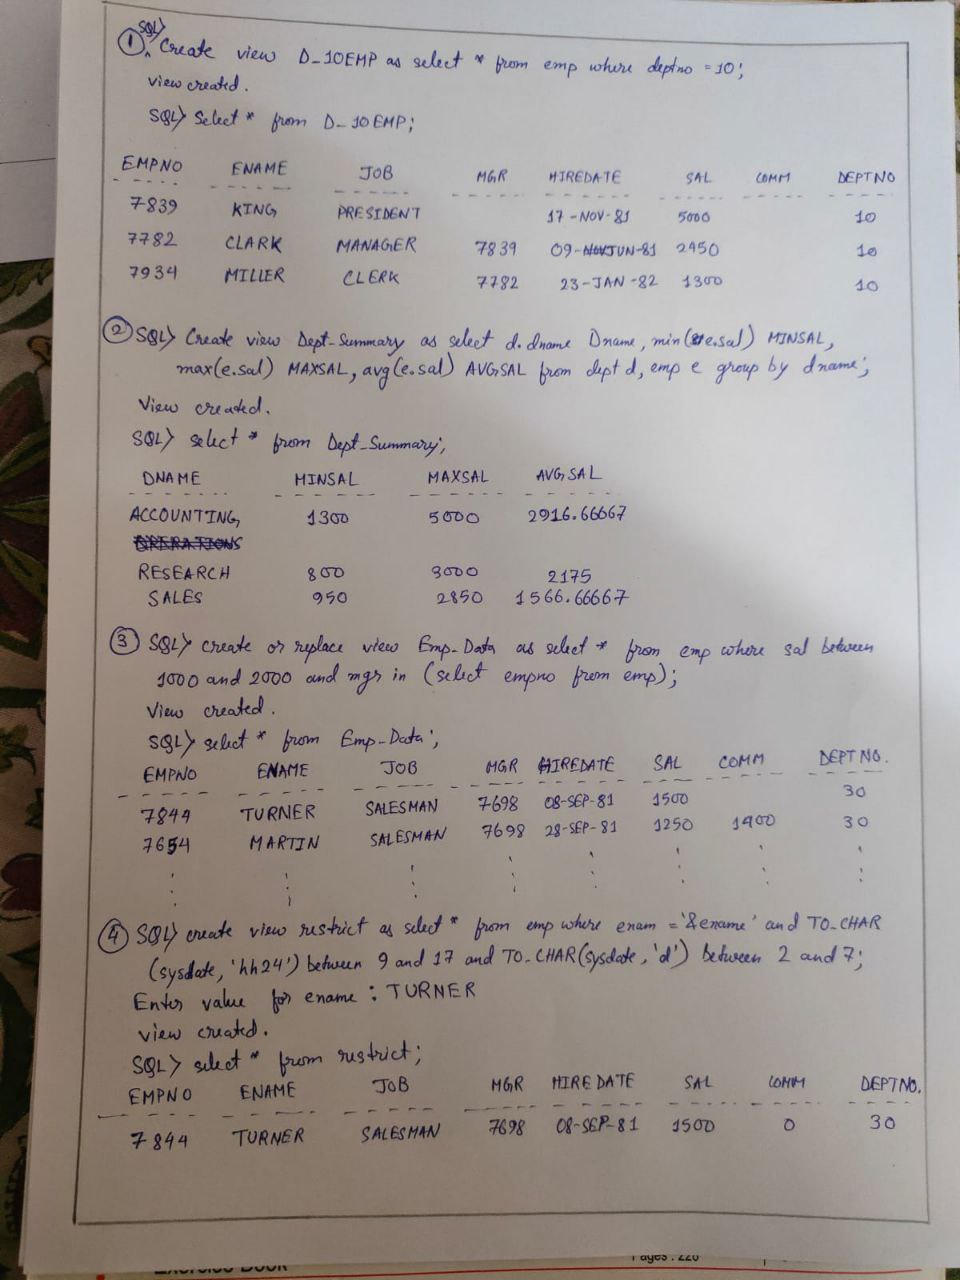 ① SQL> Create view D_10EMP as select * from emp where deptno = 10;
view created.
SQL> Select * from D_10EMP;
EMPNO ENAME JOB MGR HIREDATE SAL COMM DEPTNO
7839 KING PRESIDENT 17-NOV-81 5000 10
7782 CLARK MANAGER 7839 09-JUN-81 2450 10
7934 MILLER CLERK 7782 23-JAN-82 1300 10
② SQL> Create view Dept_Summary as select d.dname Dname, min(e.sal) MINSAL,
max(e.sal) MAXSAL, avg(e.sal) AVGSAL from dept d, emp e group by dname;
View created.
SQL> select * from Dept_Summary;
DNAME MINSAL MAXSAL AVGSAL
ACCOUNTING 1300 5000 2916.66667
OPERATIONS
RESEARCH 800 3000 2175
SALES 950 2850 1566.66667
③ SQL> create or replace view Emp_Data as select * from emp where sal between
1000 and 2000 and mgr in (select empno from emp);
View created.
SQL> select * from Emp_Data;
EMPNO ENAME JOB MGR HIREDATE SAL COMM DEPTNO.
7844 TURNER SALESMAN 7698 08-SEP-81 1500 30
7654 MARTIN SALESMAN 7698 28-SEP-81 1250 1400 30
④ SQL> create view restrict as select * from emp where enam = '&ename' and TO_CHAR
(sysdate, 'hh24') between 9 and 17 and TO_CHAR(sysdate, 'd') between 2 and 7;
Enter value for ename : TURNER
view created.
SQL> select * from restrict;
EMPNO ENAME JOB MGR HIREDATE SAL COMM DEPTNO.
7844 TURNER SALESMAN 7698 08-SEP-81 1500 0 30
Exercise Book Pages : 220